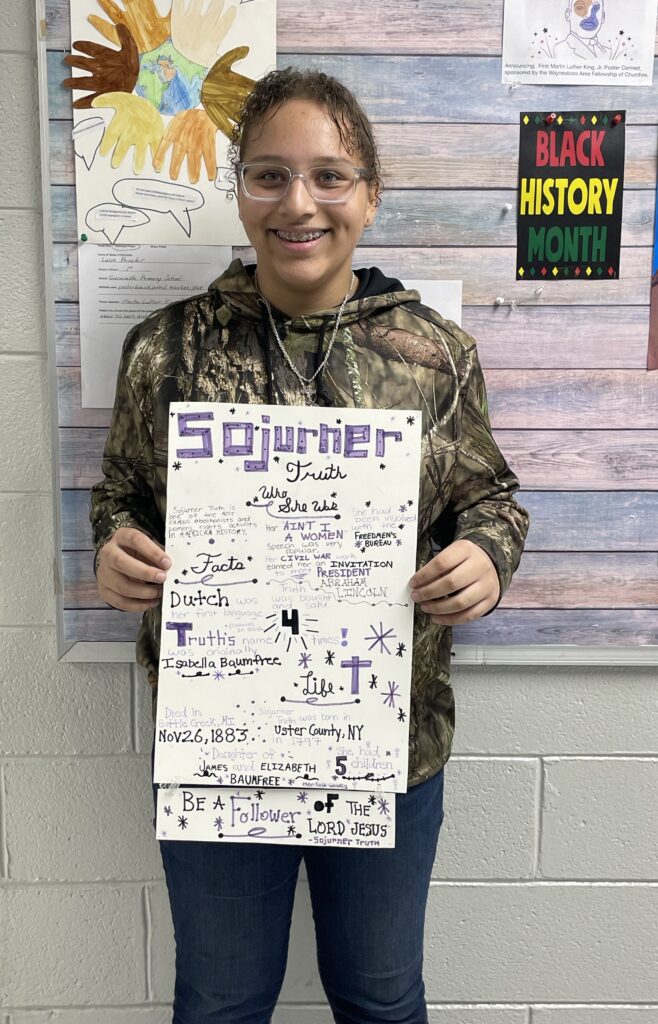 Announcing: First Martin Luther King, Jr. Poster Contest,
sponsored by the Waynesboro Area Fellowship of Churches.
BLACK
HISTORY
MONTH
Sojurner
Truth
Who
She Was
Sojurner Truth is
one of the most
famous abolitionists and
womens rights activists
in AMERICAN HISTORY.
Her AIN'T I
A WOMEN
speech was very
popular.
Her CIVIL WAR work
earned her an INVITATION
to meet PRESIDENT
ABRAHAM
LINCOLN
She had
been involved
with the
FREEDMEN'S
BUREAU
Facts
Dutch was
her first language
Truth was bought
and sold
4
times!
Truth's name
was originally
Isabella Baumfree
Life
Died in
Battle Creek, MI
Nov 26, 1883.
Sojurner
Truth was born in
Uster County, NY
in 1797
Daughter of
JAMES and ELIZABETH
BAUMFREE
She had
5 children
BE A Follower OF THE
LORD JESUS
-Sojurner Truth